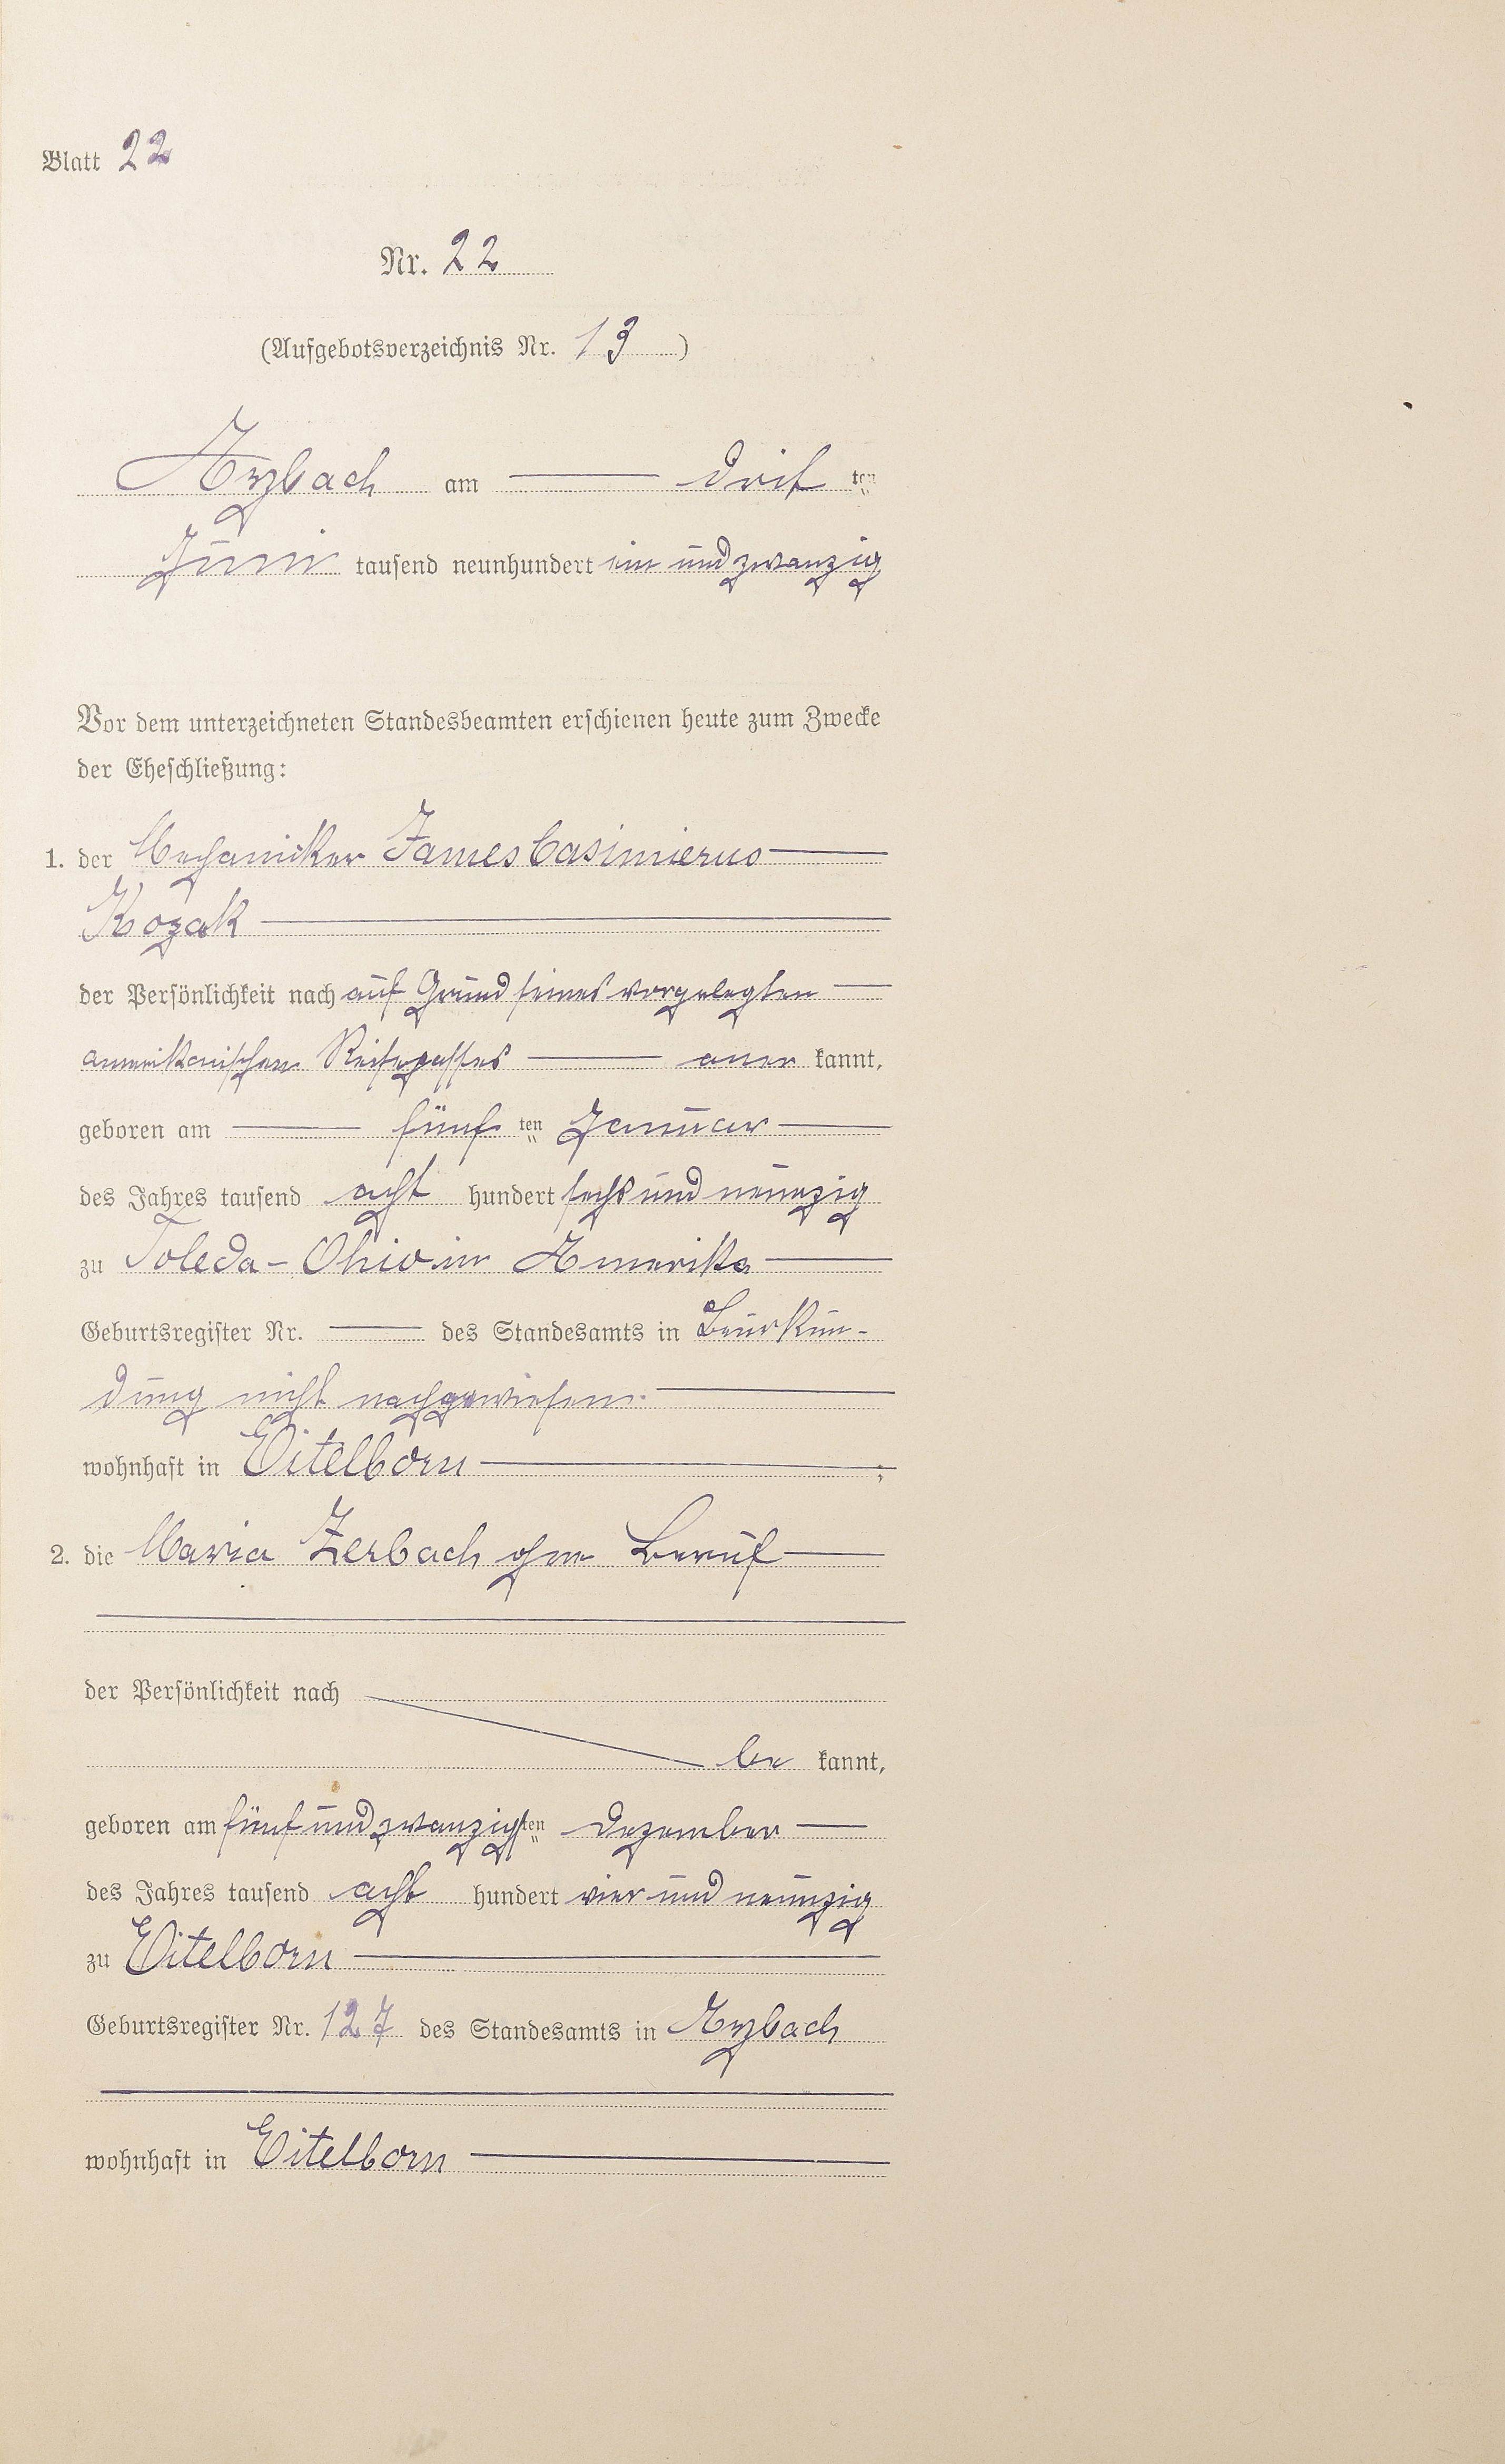 Blatt 22
Nr. 22
(Aufgebotsverzeichnis Nr. 19)
Arzbach am drit ten
Juni tausend neunhundert ein und zwanzig
Vor dem unterzeichneten Standesbeamten erschienen heute zum Zwecke
der Eheschließung:
1. der Mechaniker James Casimierus
Kozak
der Persönlichkeit nach auf Grund seines vorgelegten
amerikanischen Reisepasses aner kannt,
geboren am fünf ten Januar
des Jahres tausend acht hundert sechs und neunzig
zu Toleda - Ohio in Amerika
Geburtsregister Nr. des Standesamts in Beurkun-
dung nicht nachgewiesen.
wohnhaft in Eitelborn ;
2. die Maria Zerbach ohne Beruf
der Persönlichkeit nach
be kannt,
geboren am fünf und zwanzigsten Dezember
des Jahres tausend acht hundert vier und neunzig
zu Eitelborn
Geburtsregister Nr. 127 des Standesamts in Arzbach
wohnhaft in Eitelborn